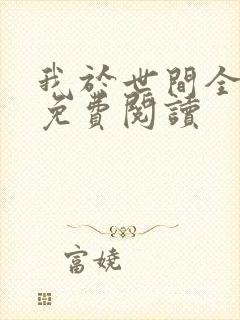 我於世間全
免費閱讀
富娆